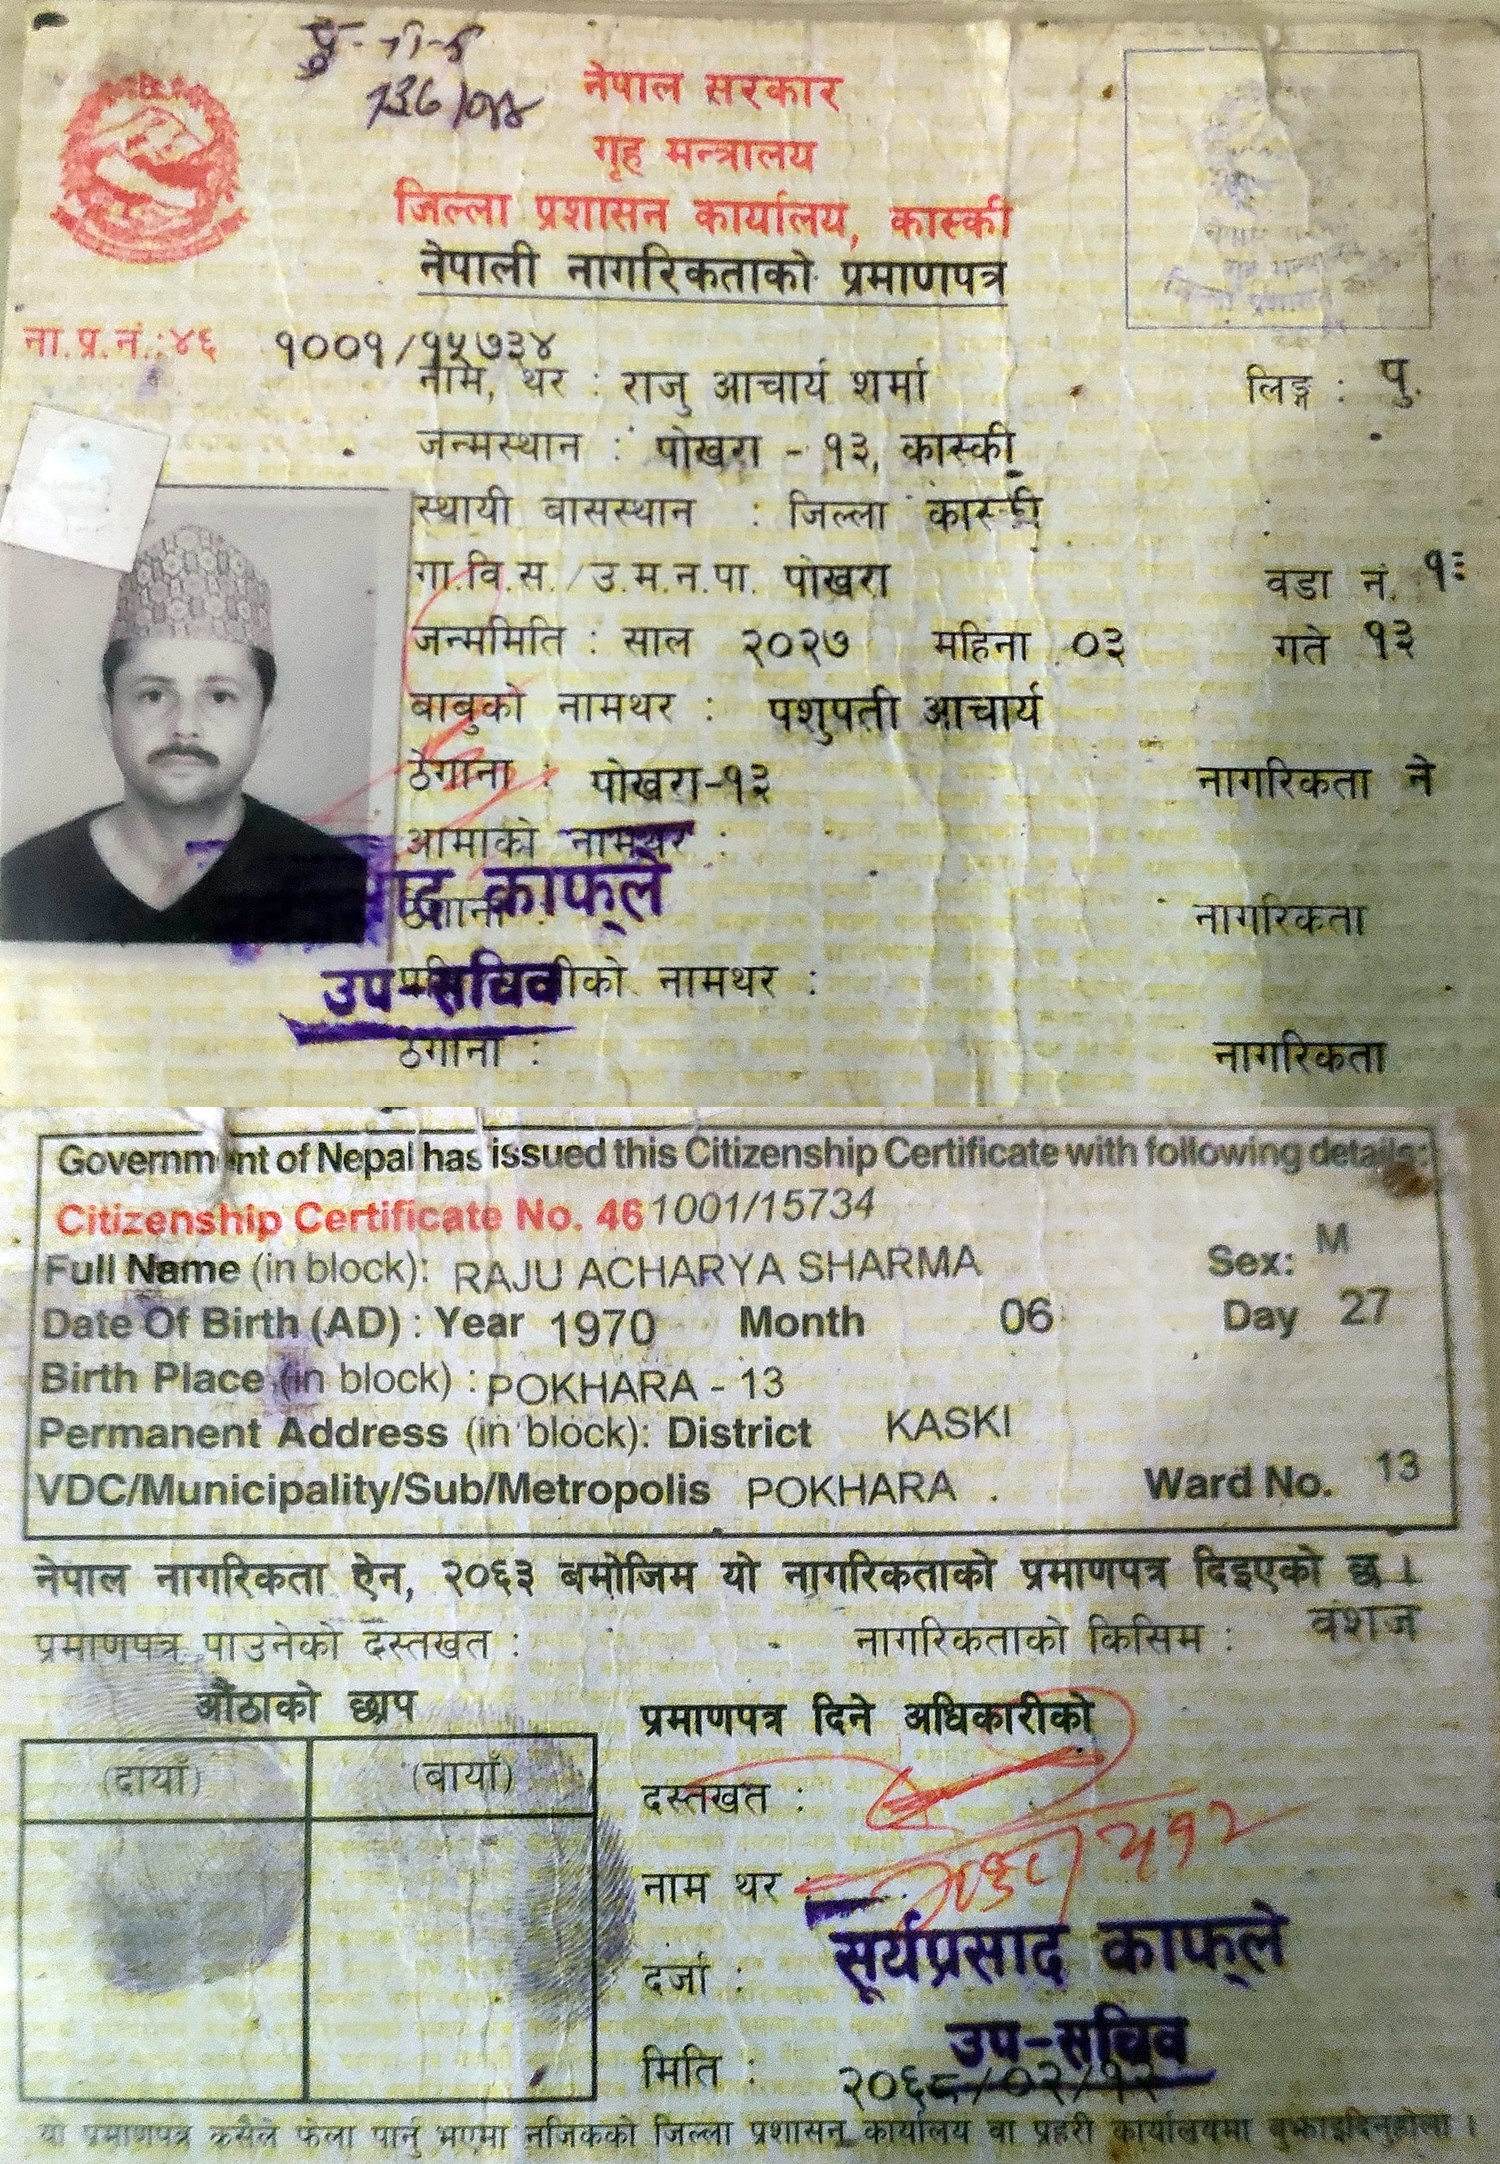 नेपाल सरकार
गृह मन्त्रालय
जिल्ला प्रशासन कार्यालय, कास्की
नेपाली नागरिकताको प्रमाणपत्र
ना.प्र.नं.:४६ १००१/१५७३४
नाम, थर : राजु आचार्य शर्मा लिङ्ग : पु.
जन्मस्थान : पोखरा - १३, कास्की
स्थायी वासस्थान : जिल्ला कास्की
गा.वि.स./उ.म.न.पा. पोखरा वडा नं. १३
जन्ममिति : साल २०२७ महिना ०३ गते १३
बाबुको नामथर : पशुपती आचार्य
ठेगाना : पोखरा-१३ नागरिकता ने
आमाको नामथर :
काफ्ले
ठेगाना : नागरिकता
उप-सचिव
नामथर :
ठेगाना : नागरिकता
Government of Nepal has issued this Citizenship Certificate with following details:
Citizenship Certificate No. 46 1001/15734
Full Name (in block): RAJU ACHARYA SHARMA Sex: M
Date Of Birth (AD) : Year 1970 Month 06 Day 27
Birth Place (in block) : POKHARA - 13
Permanent Address (in block): District KASKI
VDC/Municipality/Sub/Metropolis POKHARA . Ward No. 13
नेपाल नागरिकता ऐन, २०६३ बमोजिम यो नागरिकताको प्रमाणपत्र दिइएको छ ।
प्रमाणपत्र पाउनेको दस्तखत : नागरिकताको किसिम : वंशज
औंठाको छाप
(दायाँ) (बायाँ)
प्रमाणपत्र दिने अधिकारीको
दस्तखत :
नाम थर :
सूर्यप्रसाद काफ्ले
दर्जा :
उप-सचिव
मिति : २०६८/०२/१२
यो प्रमाणपत्र कसैले फेला पार्नु भएमा नजिकको जिल्ला प्रशासन कार्यालय वा प्रहरी कार्यालयमा बुझाइदिनुहोला ।